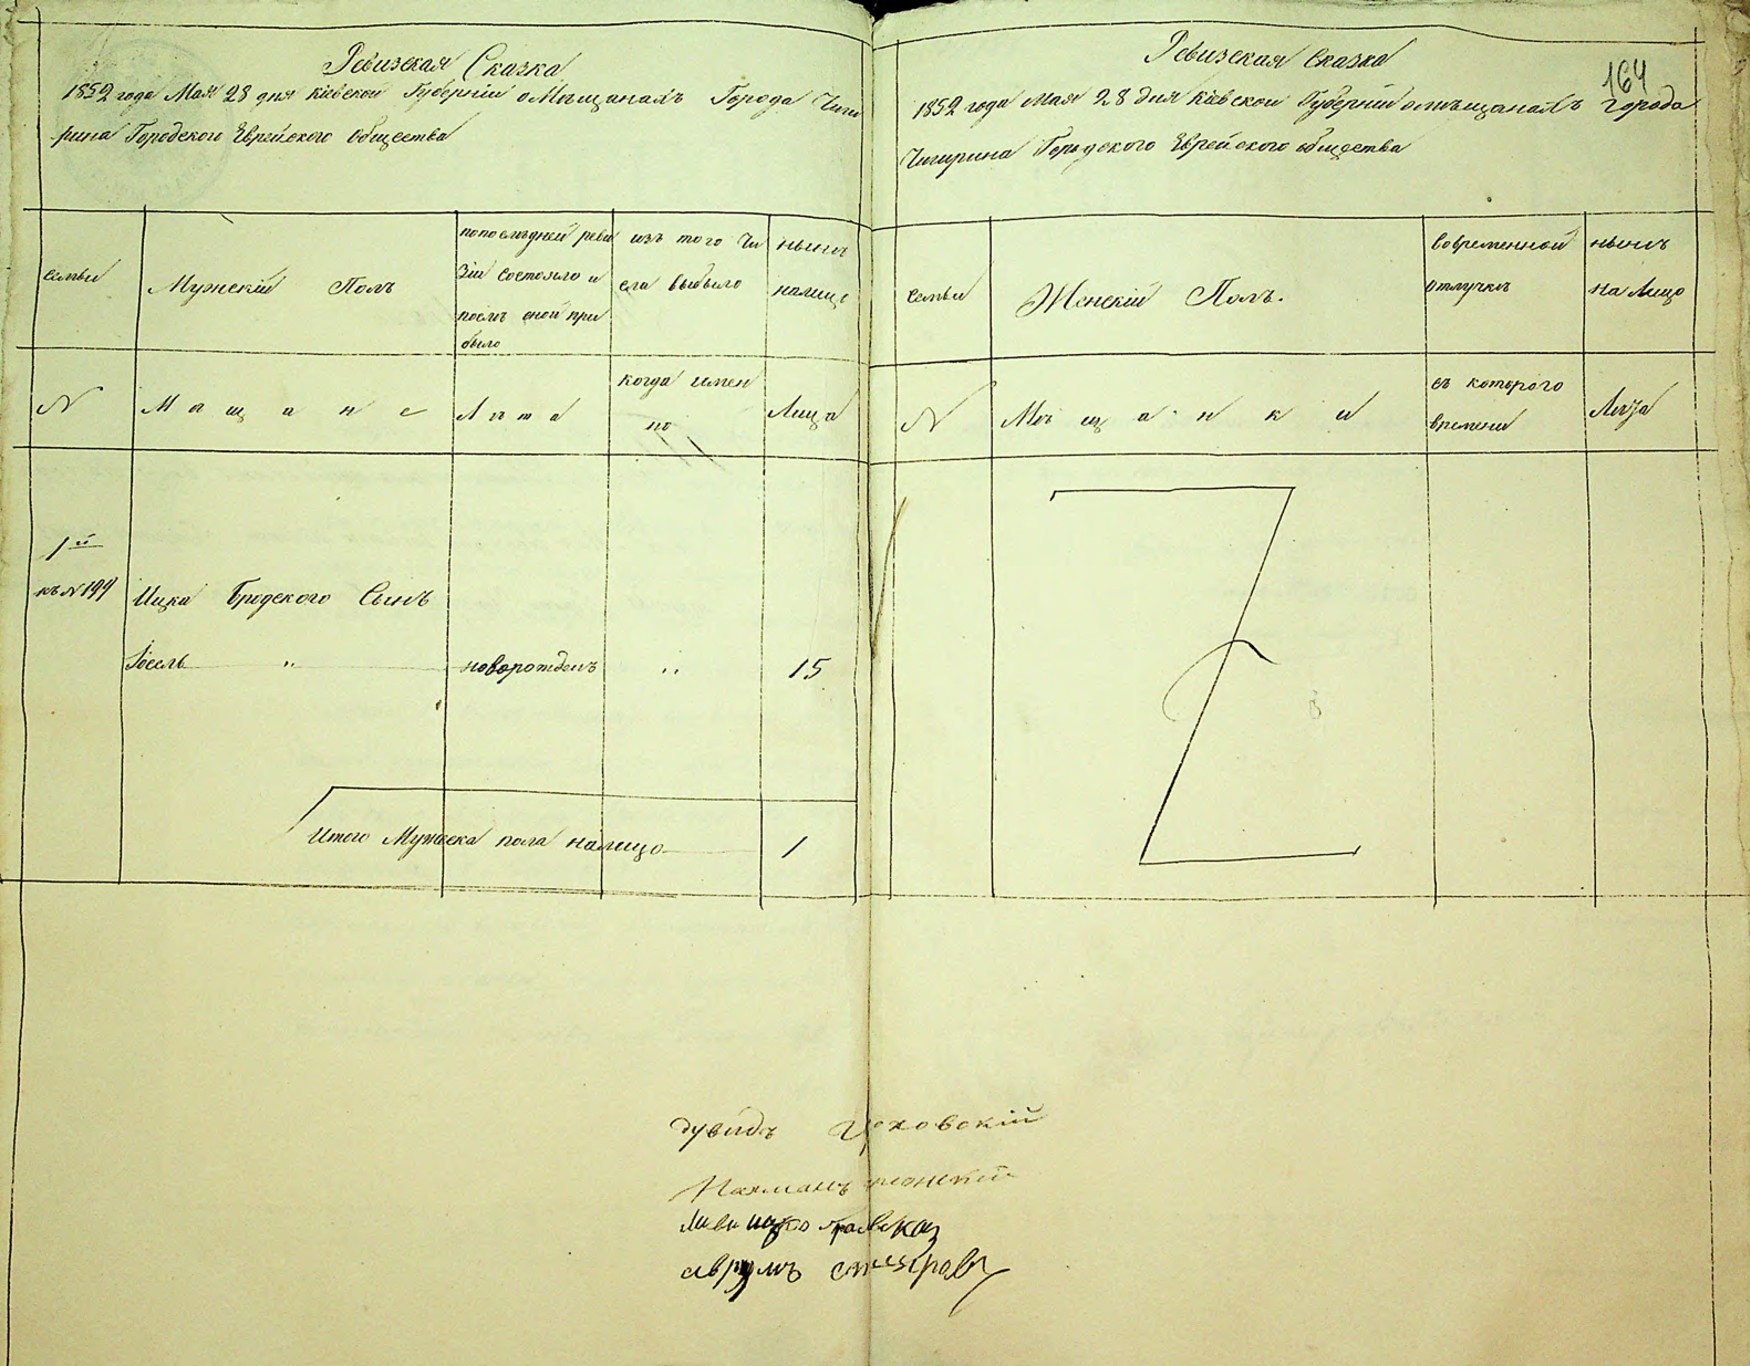 Ревизская Сказка
1852 года Мая 28 дня Кіевской Губерніи о Мѣщанахъ Города Чиги
рина Городского Еврейского Общества
семьи
Мужскій Полъ
попослѣдней реви
зіи состояло и
послѣ оной при
было
изъ того Чи
сла выбыло
нынѣ
налицо
N
М ѣ щ а н е
Л ѣ т а
когда имен
но
Лица
1й
къ N 199
Ицка Бродского Сынъ
Іосель " новорожденъ " 15
Итого Мужеска пола налицо 1
164
Ревизская Сказка
1852 года Мая 28 дня Кіевской Губерніи о мѣщанахъ Города
Чигирина Городского Еврейского общества
семьи
Женскій Полъ.
вовременной
отлучкѣ
нынѣ
на Лицо
N
Мѣ щ а н к и
съ которого
времени
Лица
дувидъ
Нахманъ
аврумъ